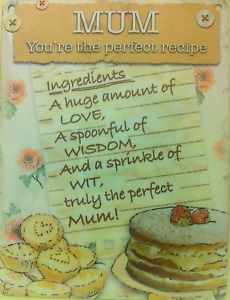 MUM
You're the perfect recipe
Ingredients
A huge amount of
LOVE,
A spoonful of
WISDOM,
And a sprinkle of
WIT,
truly the perfect
Mum!